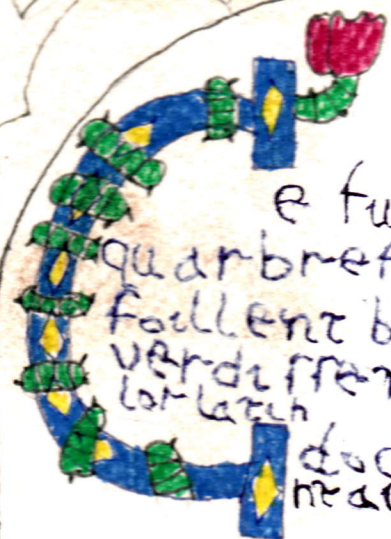 C
e fu
quarbref
foillent b
verdissen
lor latin
doc